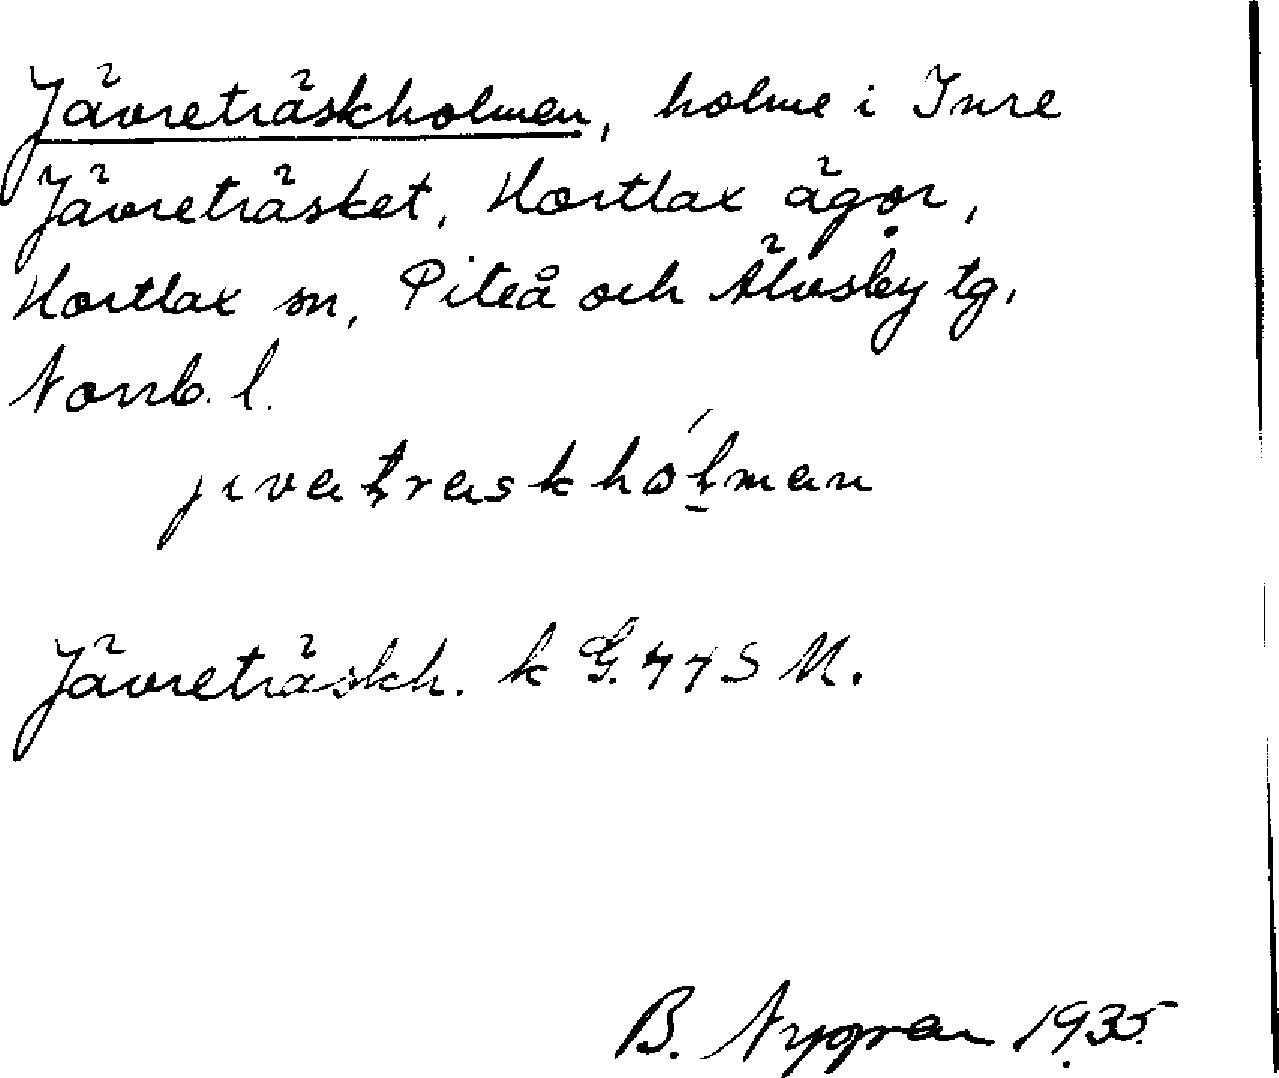 Jävreträskholmen, holme i Inre
Jävreträsket, Hortlax ägor,
Hortlax sn, Piteå och Älvsby tg.
Norrb. l.
jɩvatraskhólman
Jävreträskh. k G. 445 M.
B. Nygren 1935